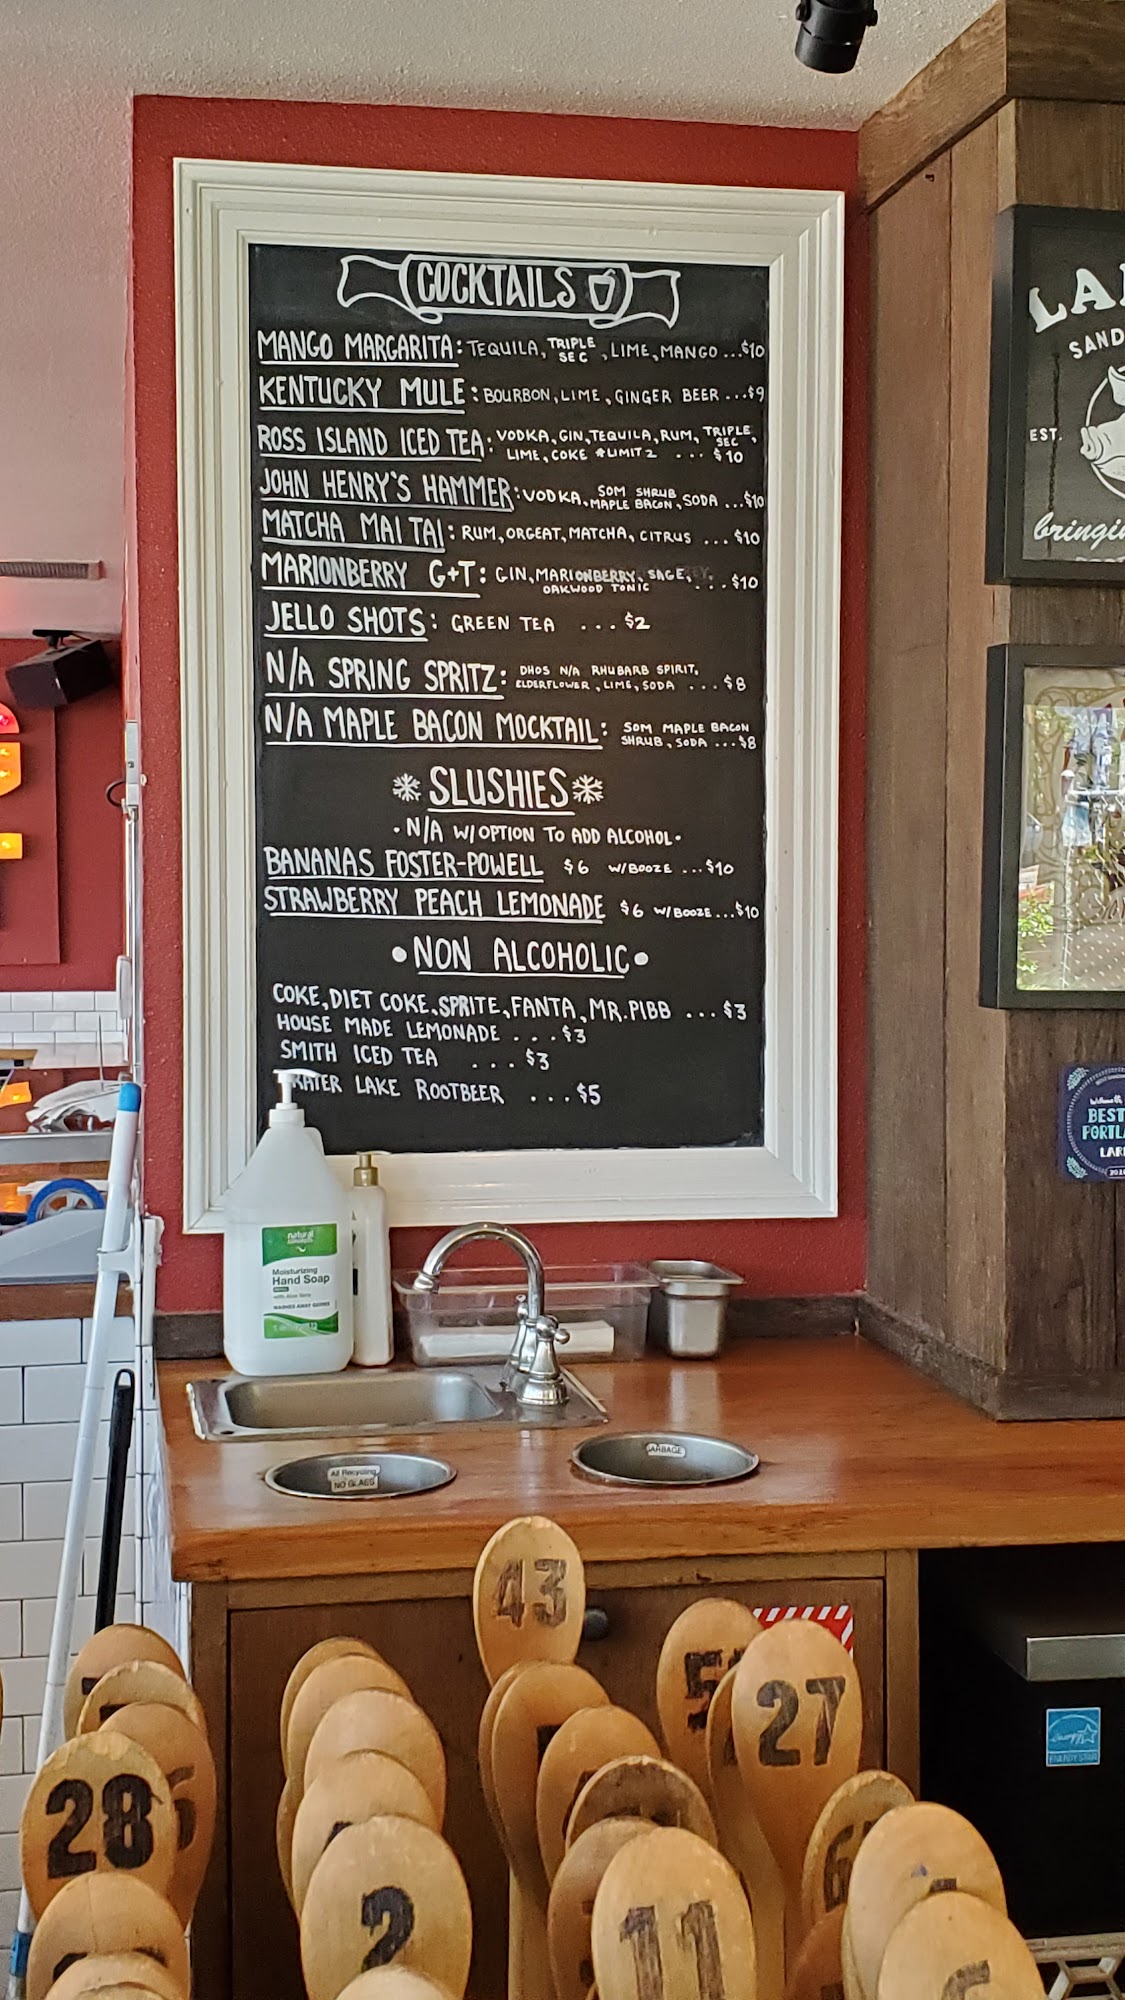 COCKTAILS
MANGO MARGARITA: TEQUILA, TRIPLE SEC, LIME, MANGO ...$10
KENTUCKY MULE: BOURBON, LIME, GINGER BEER ...$9
ROSS ISLAND ICED TEA: VODKA, GIN, TEQUILA, RUM, TRIPLE SEC,
LIME, COKE *LIMIT 2 ... $10
JOHN HENRY'S HAMMER: VODKA, SOM SHRUB MAPLE BACON, SODA ...$10
MATCHA MAI TAI: RUM, ORGEAT, MATCHA, CITRUS ...$10
MARIONBERRY G+T: GIN, MARIONBERRY, SAGE,
OAKWOOD TONIC ...$10
JELLO SHOTS: GREEN TEA ...$2
N/A SPRING SPRITZ: DHOS N/A RHUBARB SPIRIT,
ELDERFLOWER, LIME, SODA ...$8
N/A MAPLE BACON MOCKTAIL: SOM MAPLE BACON
SHRUB, SODA ...$8
SLUSHIES
• N/A W/ OPTION TO ADD ALCOHOL •
BANANAS FOSTER-POWELL $6 W/BOOZE ...$10
STRAWBERRY PEACH LEMONADE $6 W/BOOZE ...$10
• NON ALCOHOLIC •
COKE, DIET COKE, SPRITE, FANTA, MR. PIBB ...$3
HOUSE MADE LEMONADE ...$3
SMITH ICED TEA ...$3
RATER LAKE ROOTBEER ...$5
SAND
EST.
bringin
BEST
PORTLA
natural
concepts
Moisturizing
Hand Soap
REFILL
with Aloe Vera
WASHES AWAY GERMS
All Recycling
NO GLASS
GARBAGE
ENERGY STAR
43
27
28
2
11